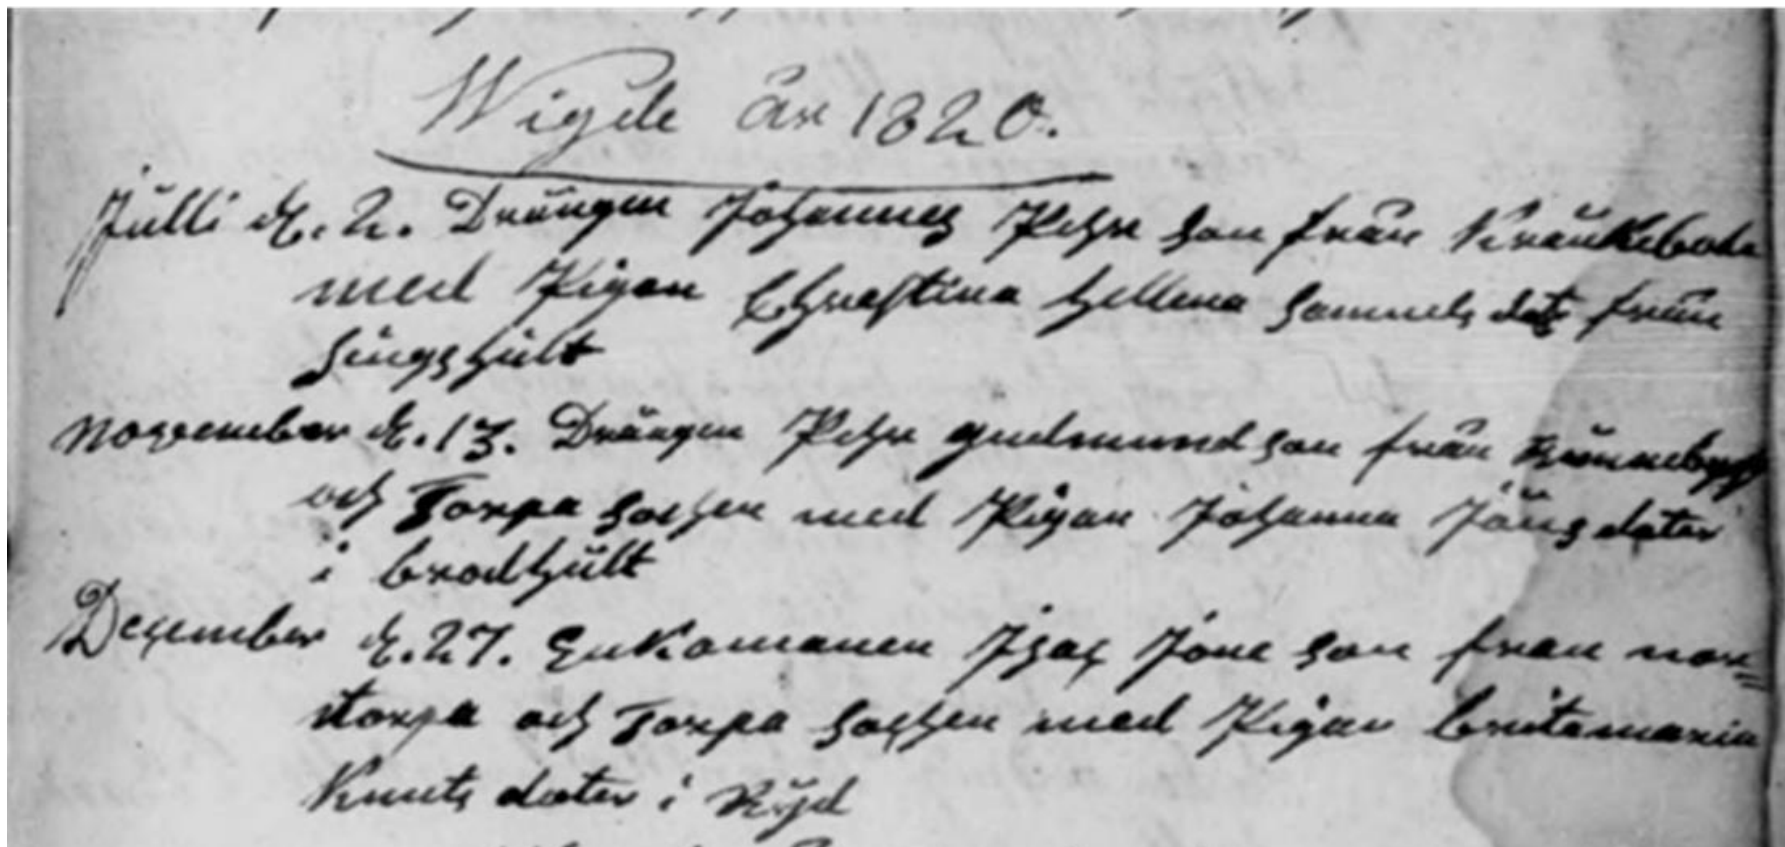 Wigde år 1820.
Jülli d. 2. Drängen Johannes Pehr son från Kränkeboda
med Pigan Chrestina hellena Samuels dotr från
Singshült
November d. 13. Drängen Pehr gudmundson från
och Torpa Sochen med Pigan Johanna Jöns doter
i brodhült
December d. 27. Enkomanen Isac Jone son fran nor=
torpa och Torpa Sochen med Pigan britamaria
Knuts doter i Ryd